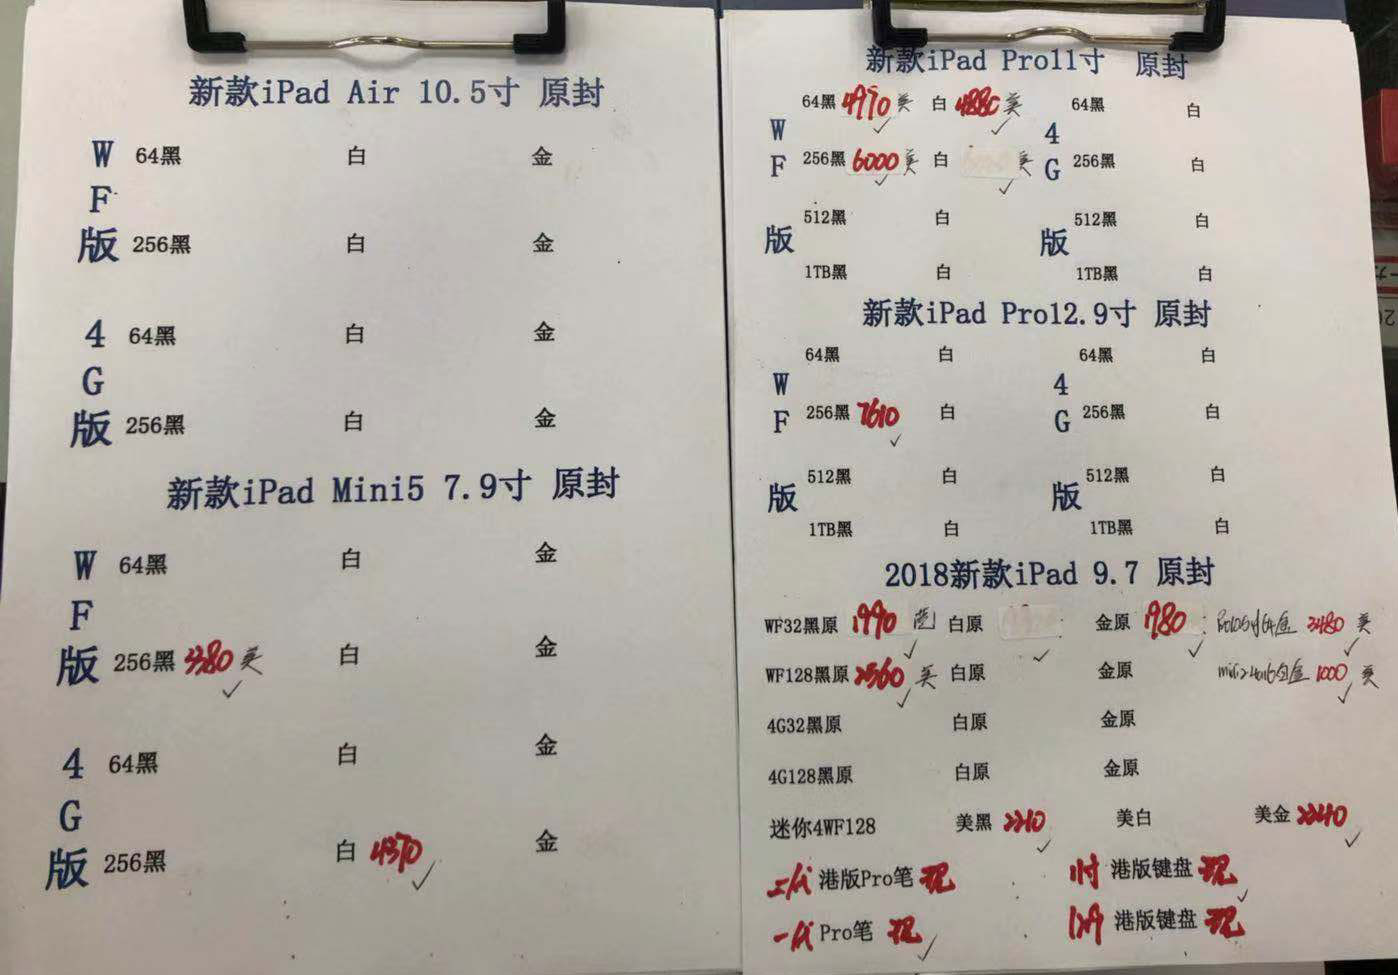 新款iPad Air 10.5寸 原封
WF版
64黑 白 金
256黑 白 金
4G版
64黑 白 金
256黑 白 金
新款iPad Mini5 7.9寸 原封
WF版
64黑 白 金
256黑 3380 美 白 金
4G版
64黑 白 金
256黑 白 4370 金
新款iPad Pro11寸 原封
WF版 4G版
64黑 4970 美 白 4880 美 64黑 白
256黑 6000 美 白 美 256黑 白
512黑 白 512黑 白
1TB黑 白 1TB黑 白
新款iPad Pro12.9寸 原封
WF版 4G版
64黑 白 64黑 白
256黑 7610 白 256黑 白
512黑 白 512黑 白
1TB黑 白 1TB黑 白
2018新款iPad 9.7 原封
WF32黑原 1990 白原 金原 1980 3480 美
WF128黑原 2560 美 白原 金原 1000 美
4G32黑原 白原 金原
4G128黑原 白原 金原
迷你4WF128 美黑 2210 美白 美金 2240
二代 港版Pro笔 现 11寸 港版键盘 现
一代 Pro笔 现 12.9 港版键盘 现